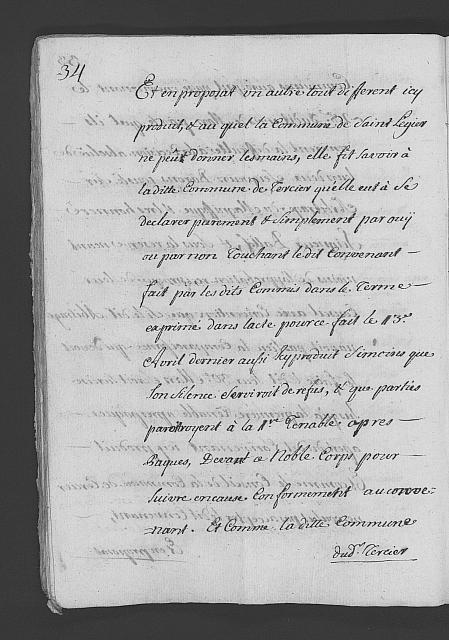 34
Et en proposat un autre tout different icy
produit, & au quel la Commune de Saint Legier
ne peût donner les mains, elle fit savoir à
la ditte Commune de Tercier qu'elle eut à se
declarer purement & simplement par ouÿ
ou par non touchant le dit Convenant
fait par les dits Commis dans le Terme
exprimé dans lacte pource fait le 13.e
Avril dernier aussi icy produit Sinon que
son Silence serviroit de refus, & que parties
paroîtroyent à la 1.re Tenable apres
Paques, Devant ce Noble Corps pour
suivre en cause Conformement au conve-
nant. Et Comme la ditte Commune
dud.t Tercier